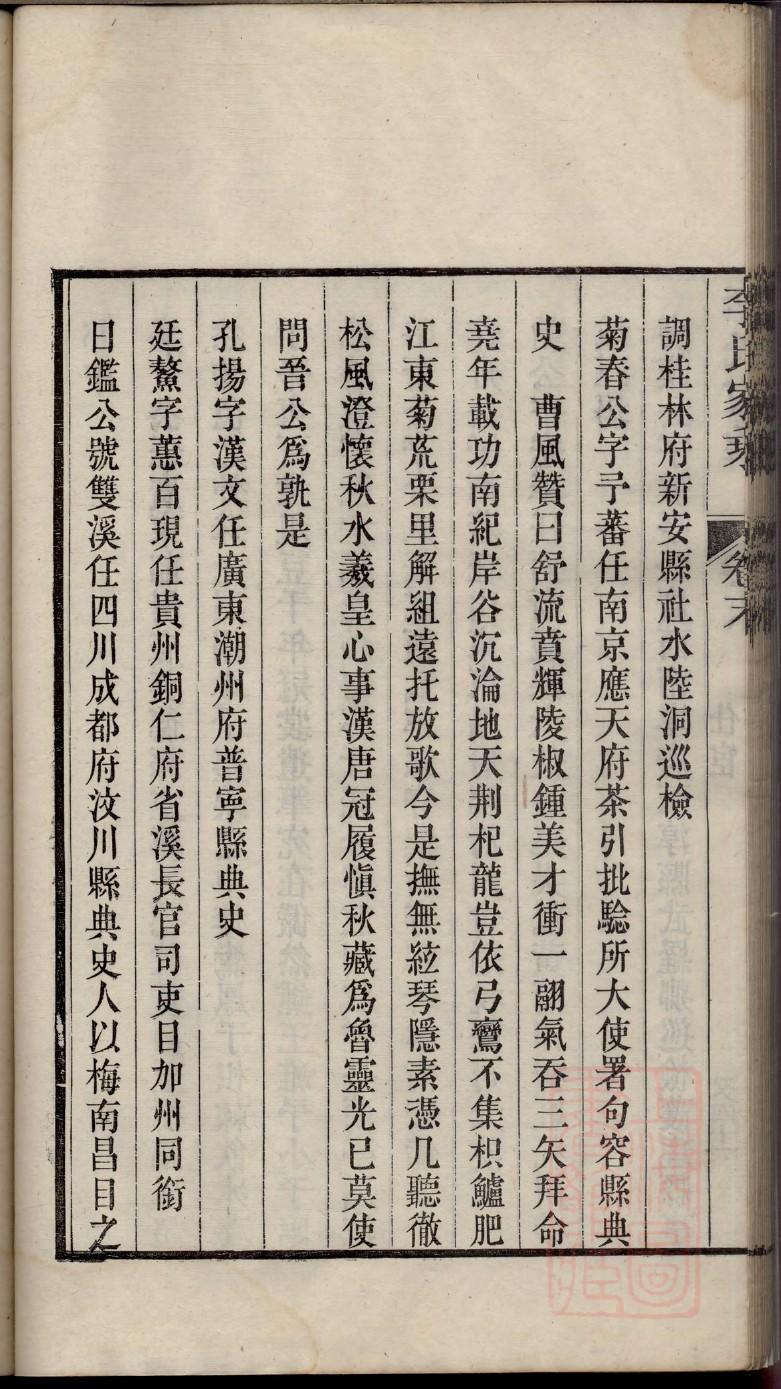 李氏家乘 卷末
調桂林府新安縣社水陸洞巡檢
菊春公字予蕃任南京應天府茶引批驗所大使署句容縣典
史　曹風贊曰舒流賁輝陵椒鍾美才衝一翮氣吞三矢拜命
堯年載功南紀岸谷沉淪地天荆杞龍豈依弓鸞不集枳鱸肥
江東菊荒栗里解組遠托放歌今是撫無絃琴隱素憑几聽徹
松風澄懷秋水羲皇心事漢唐冠履愼秋藏爲魯靈光已莫使
問吾公爲孰是
孔揚字漢文任廣東潮州府普寧縣典史
廷鰲字蕙百現任貴州銅仁府省溪長官司吏目加州同銜
日鑑公號雙溪任四川成都府汶川縣典史人以梅南昌目之